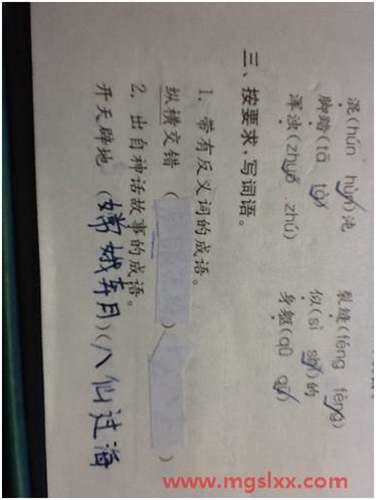 混(hún hùn)沌 裂缝(féng fèng)
脚踏(tā tà) 似(sì shì)的
浑浊(zhuó zhú) 身躯(qū
三、按要求,写词语。
1. 带有反义词的成语。
纵横交错 ( ) ( )
2. 出自神话故事的成语。
开天辟地 (嫦娥奔月)(八仙过海
www.mgslxx.com